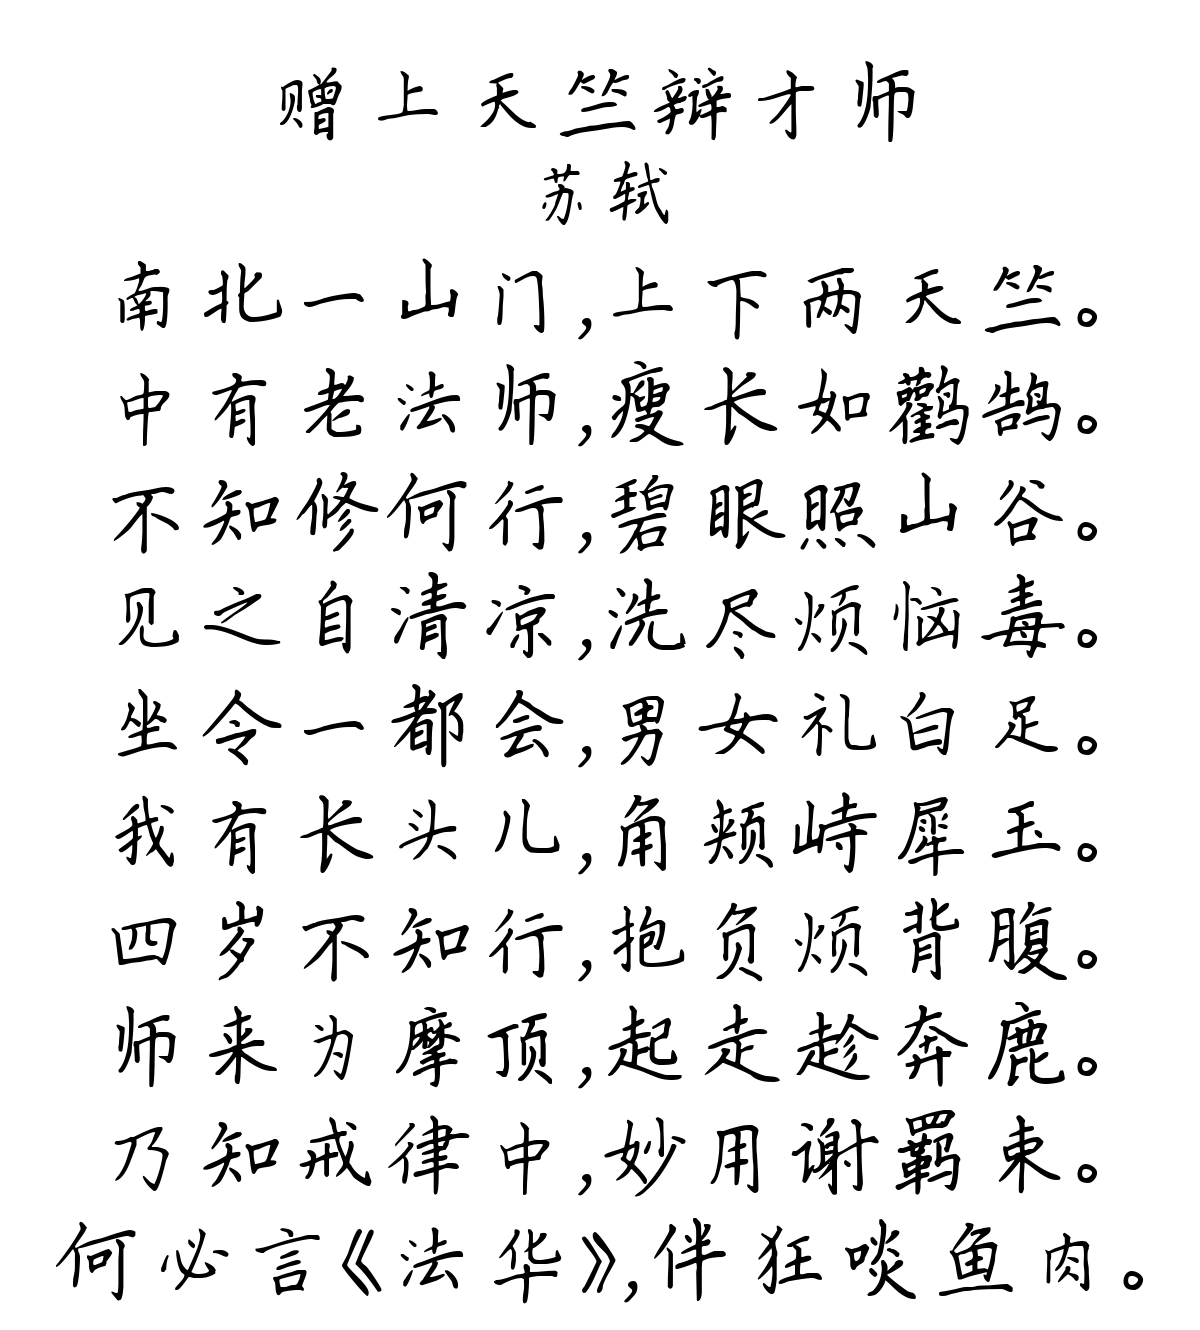 赠上天竺辩才师
苏轼
南北一山门,上下两天竺。
中有老法师,瘦长如鹳鹄。
不知修何行,碧眼照山谷。
见之自清凉,洗尽烦恼毒。
坐令一都会,男女礼白足。
我有长头儿,角颊峙犀玉。
四岁不知行,抱负烦背腹。
师来为摩顶,起走趁奔鹿。
乃知戒律中,妙用谢羁束。
何必言《法华》,伴狂啖鱼肉。